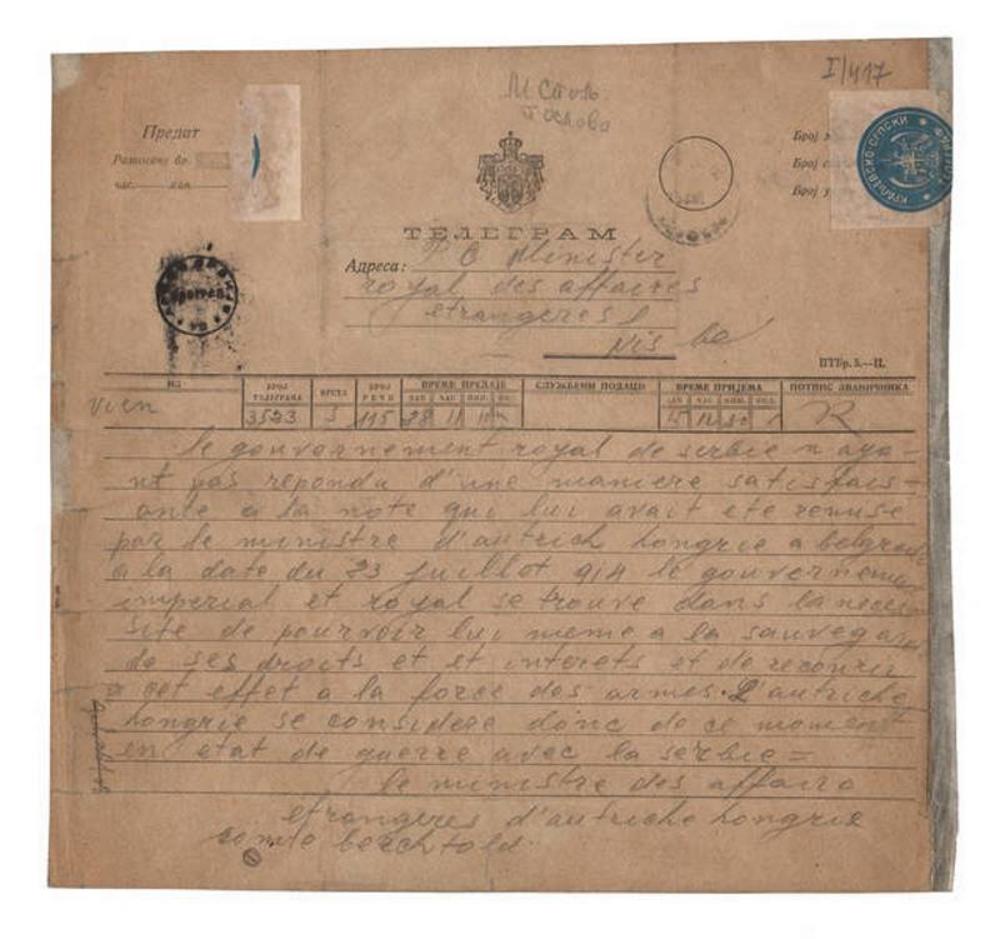 I/417
М Сп
Предат
Разносачу бр.
час. мин.
Број
Број
Број
КРАЉЕВСКО-СРПСКИ
ТЕЛЕГРАМ
Адреса: P C Minister
royal des affaires
etrangeres
Nis
ПТБр. 5.—II.
ИЗ БРОЈ ТЕЛЕГРАМА ВРСТА БРОЈ РЕЧИ ВРЕМЕ ПРЕДАЈЕ СЛУЖБЕНИ ПОДАЦИ ВРЕМЕ ПРИЈЕМА ПОТПИС ЗВАНИЧНИКА
ДАН ЧАС МИН. ДАН ЧАС МИН.
vien 3523 5 115 28 11 R
le gouvernement royal de serbie n aya-
nt pas repondu d'une maniere satisfais-
ante a la note qui lui avait ete remise
par le ministre d'autrich hongrie a belgrade
a la date du 23 juillot 914 le gouverneme
imperial et royal se trouve dans la neces
site de pourvoir lui meme a la sauvegar
de ses droits et et interets et de recourir
a cet effet a la force des armes. L'autriche
hongrie se considere donc de ce moment
en etat de guerre avec la serbie =
le ministre des affaire
etrangeres d'autriche hongrie
comte berchtold